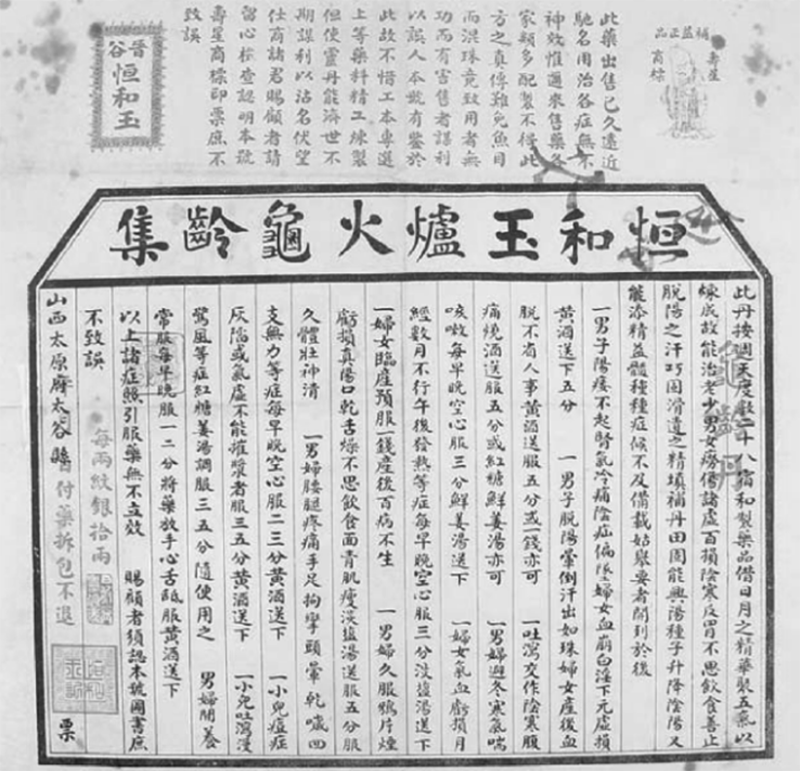 補益正品
壽星
商標
此藥出售已久遠近
馳名用治各症無不
神效惟邇來售藥各
家類多配製不得此
方之真傳難免魚目
而混珠竟致用者無
功而有害售者謀利
以誤人本號有鑒於
此故不惜工本專選
上等藥料精工煉製
但使靈丹能濟世不
期謀利以沽名伏望
仕商諸君賜顧者請
留心檢查認明本號
壽星商標即票庶不
致誤
晉谷
恒和玉
恒和玉爐火龜齡集
此丹按週天度數二十八宿和製藥品借日月之精華製五氣以
煉成故能治老少男女癆傷諸虛百損陰寒反胃不思飲食善止
脫陽之汗巧固滑遺之精填補丹田固能興陽種子升降陰陽又
能添精益髓種種症候不及備載姑舉要者開列於後
一男子陽痿不起腎氣冷痛陰症偏墜婦女血崩白淫下元虛損
黃酒送下五分　一男子脫陽暈倒汗出如珠婦女產後血
脫不省人事黃酒送服五分或一錢亦可　一吐瀉交作陰寒腹
痛燒酒送服五分或紅糖鮮姜湯亦可　一男婦避冬寒氣喘
咳嗽每早晚空心服三分鮮姜湯送下　一婦女氣血虧損月
經數月不行午後發熱等症每早晚空心服三分淡鹽湯送下
一婦女臨產預服一錢產後百病不生　一男婦久服鴉片煙
虧損真陽口乾舌燥不思飲食面青肌瘦淡鹽湯送服五分服
久體壯神清　一男婦腰腿疼痛手足拘攣頭暈乾嘔四
支無力等症每早晚空心服二三分黃酒送下　一小兒痘症
灰陷或氣虛不能摧漿者服三五分黃酒送下　一小兒吐瀉漫
驚風等症紅糖姜湯調服三五分隨使用之　男婦閒養
常服每早晚服一二分將藥放手心舌舐服黃酒送下
以上諸症照引服藥無不立效　賜顧者須認本號圖書庶
不致誤　每兩紋銀拾兩
山西太原府太谷縣　付藥拆包不退　票